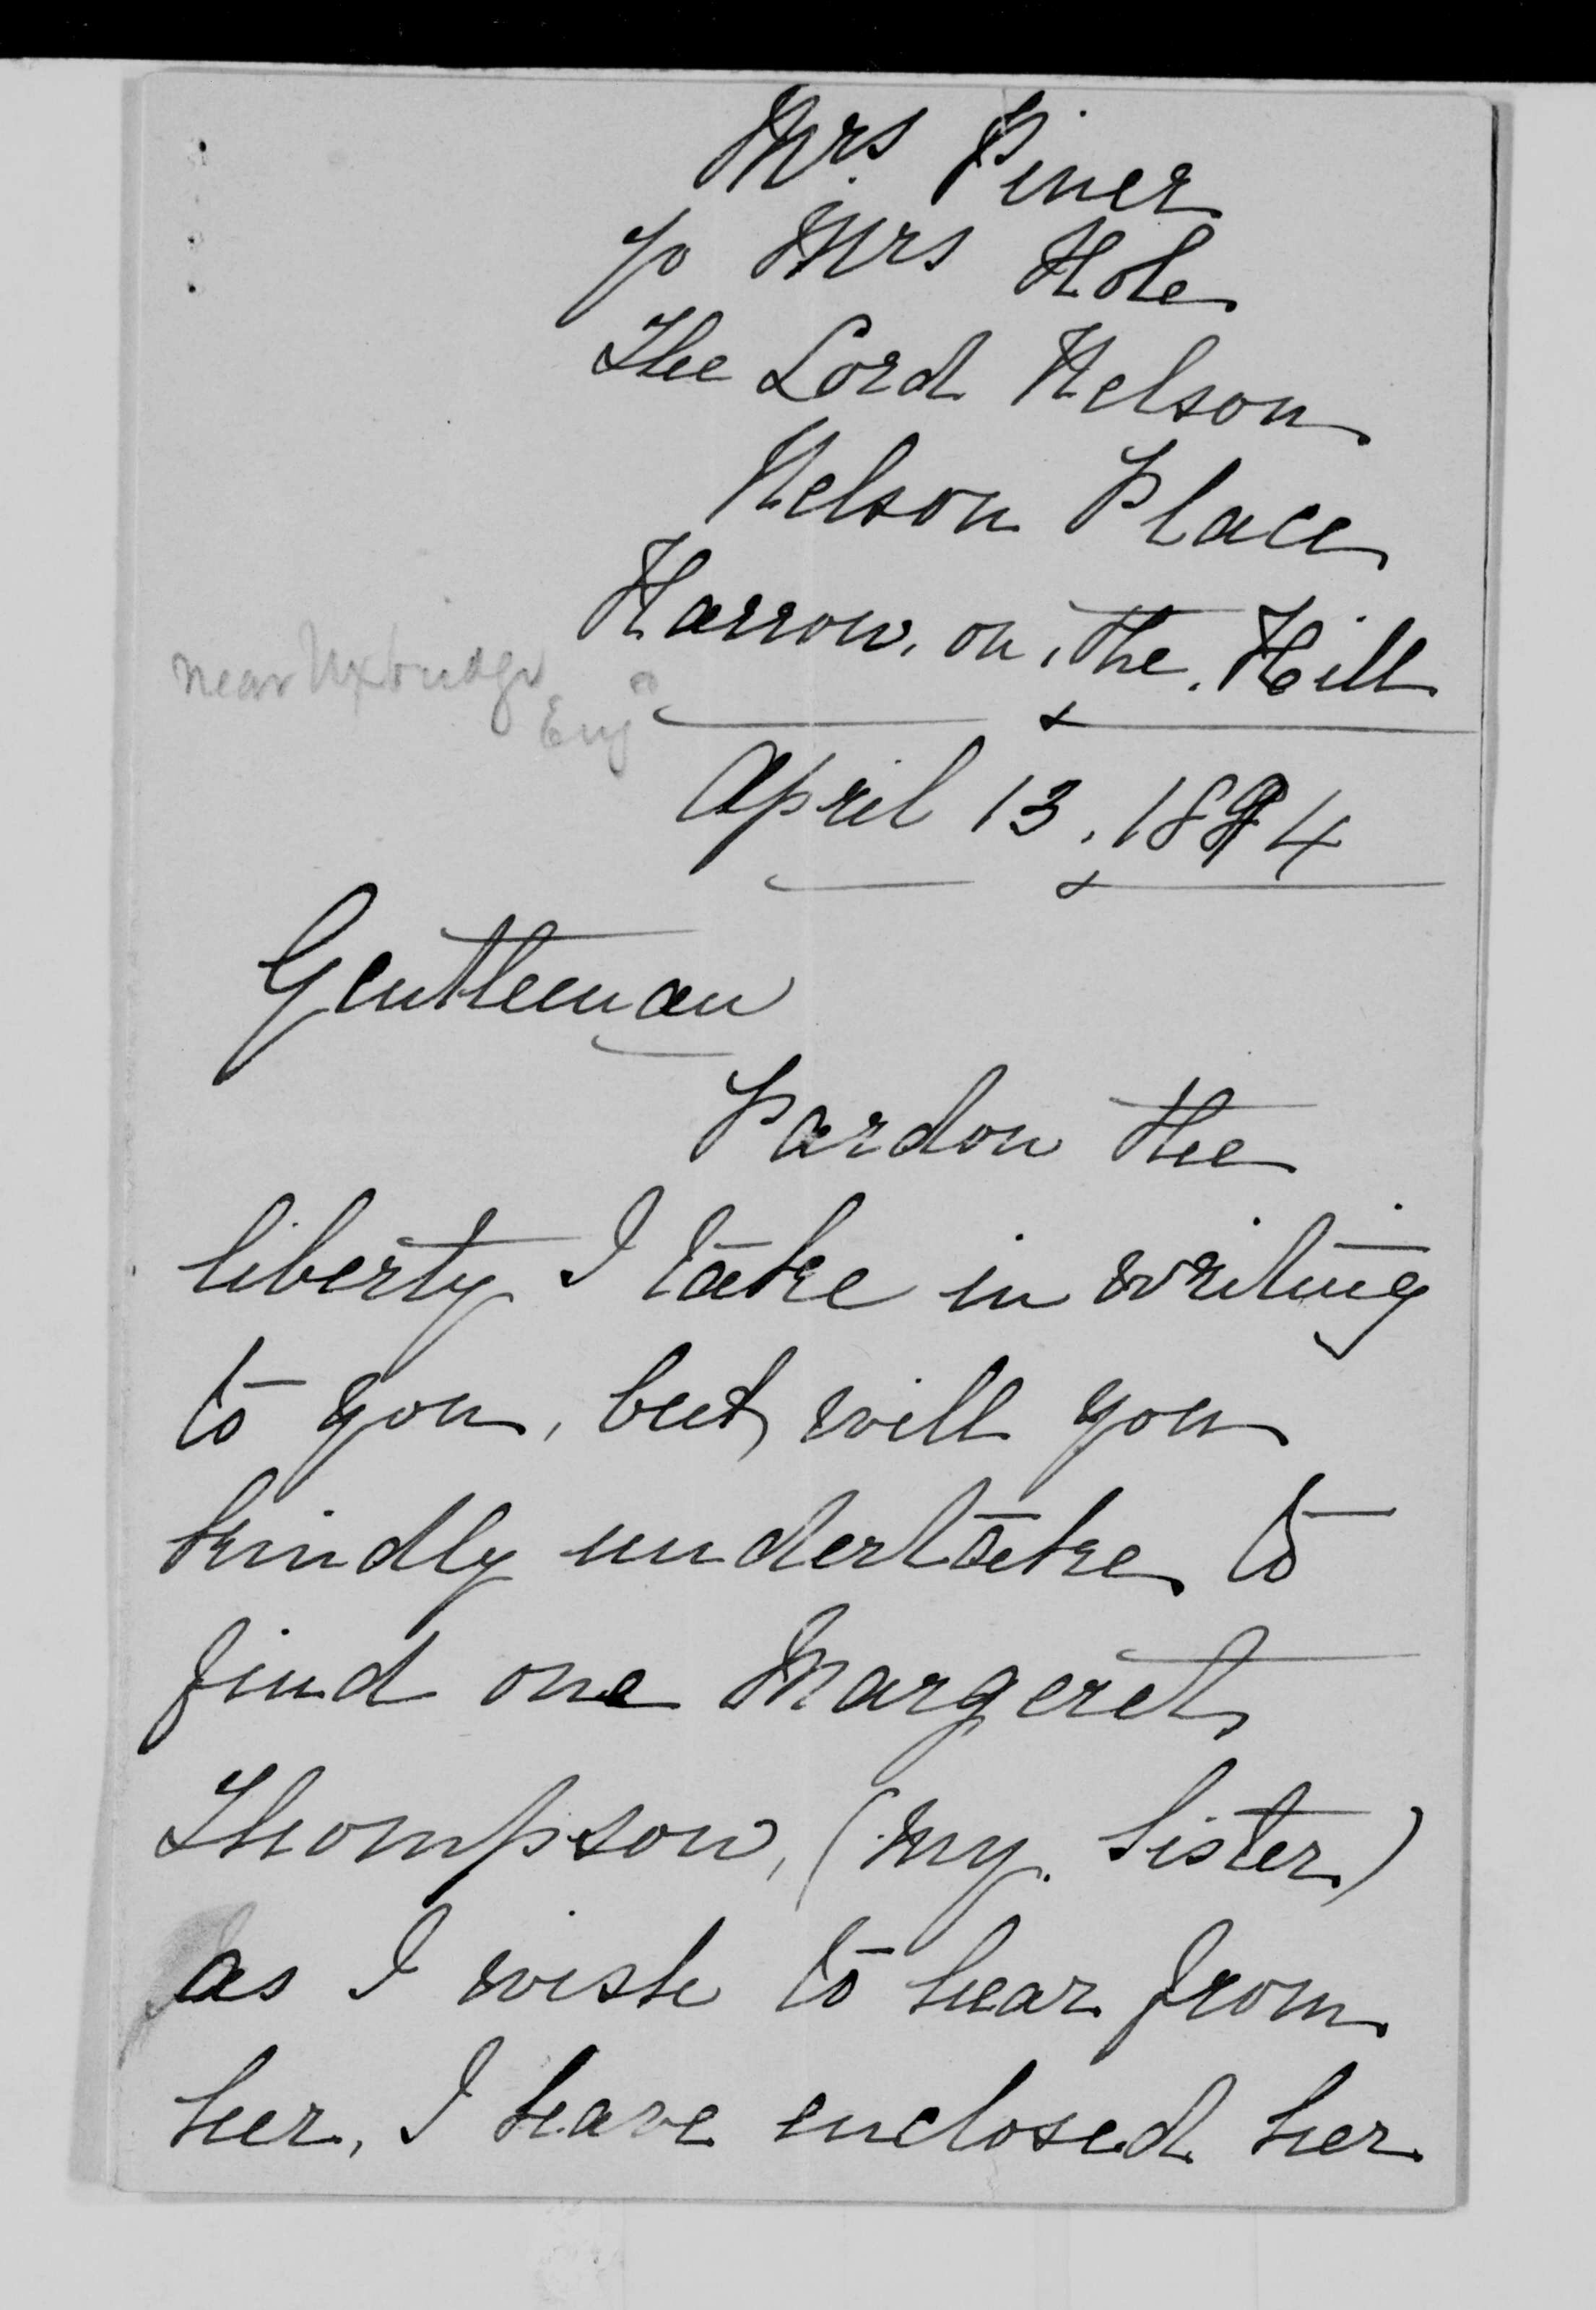 Mrs. Piner
c/o Mrs Hole
The Lord Nelson
Nelson Place
Harrow. on. the. Hill
near Uxbridge
Eng
April 13. 1894
Gentleman
Pardon the
liberty I take in writing
to you, but will you
kindly undertake to
find one Margeret
Thompson, (my Sister)
as I wish to hear from
her, I have enclosed her